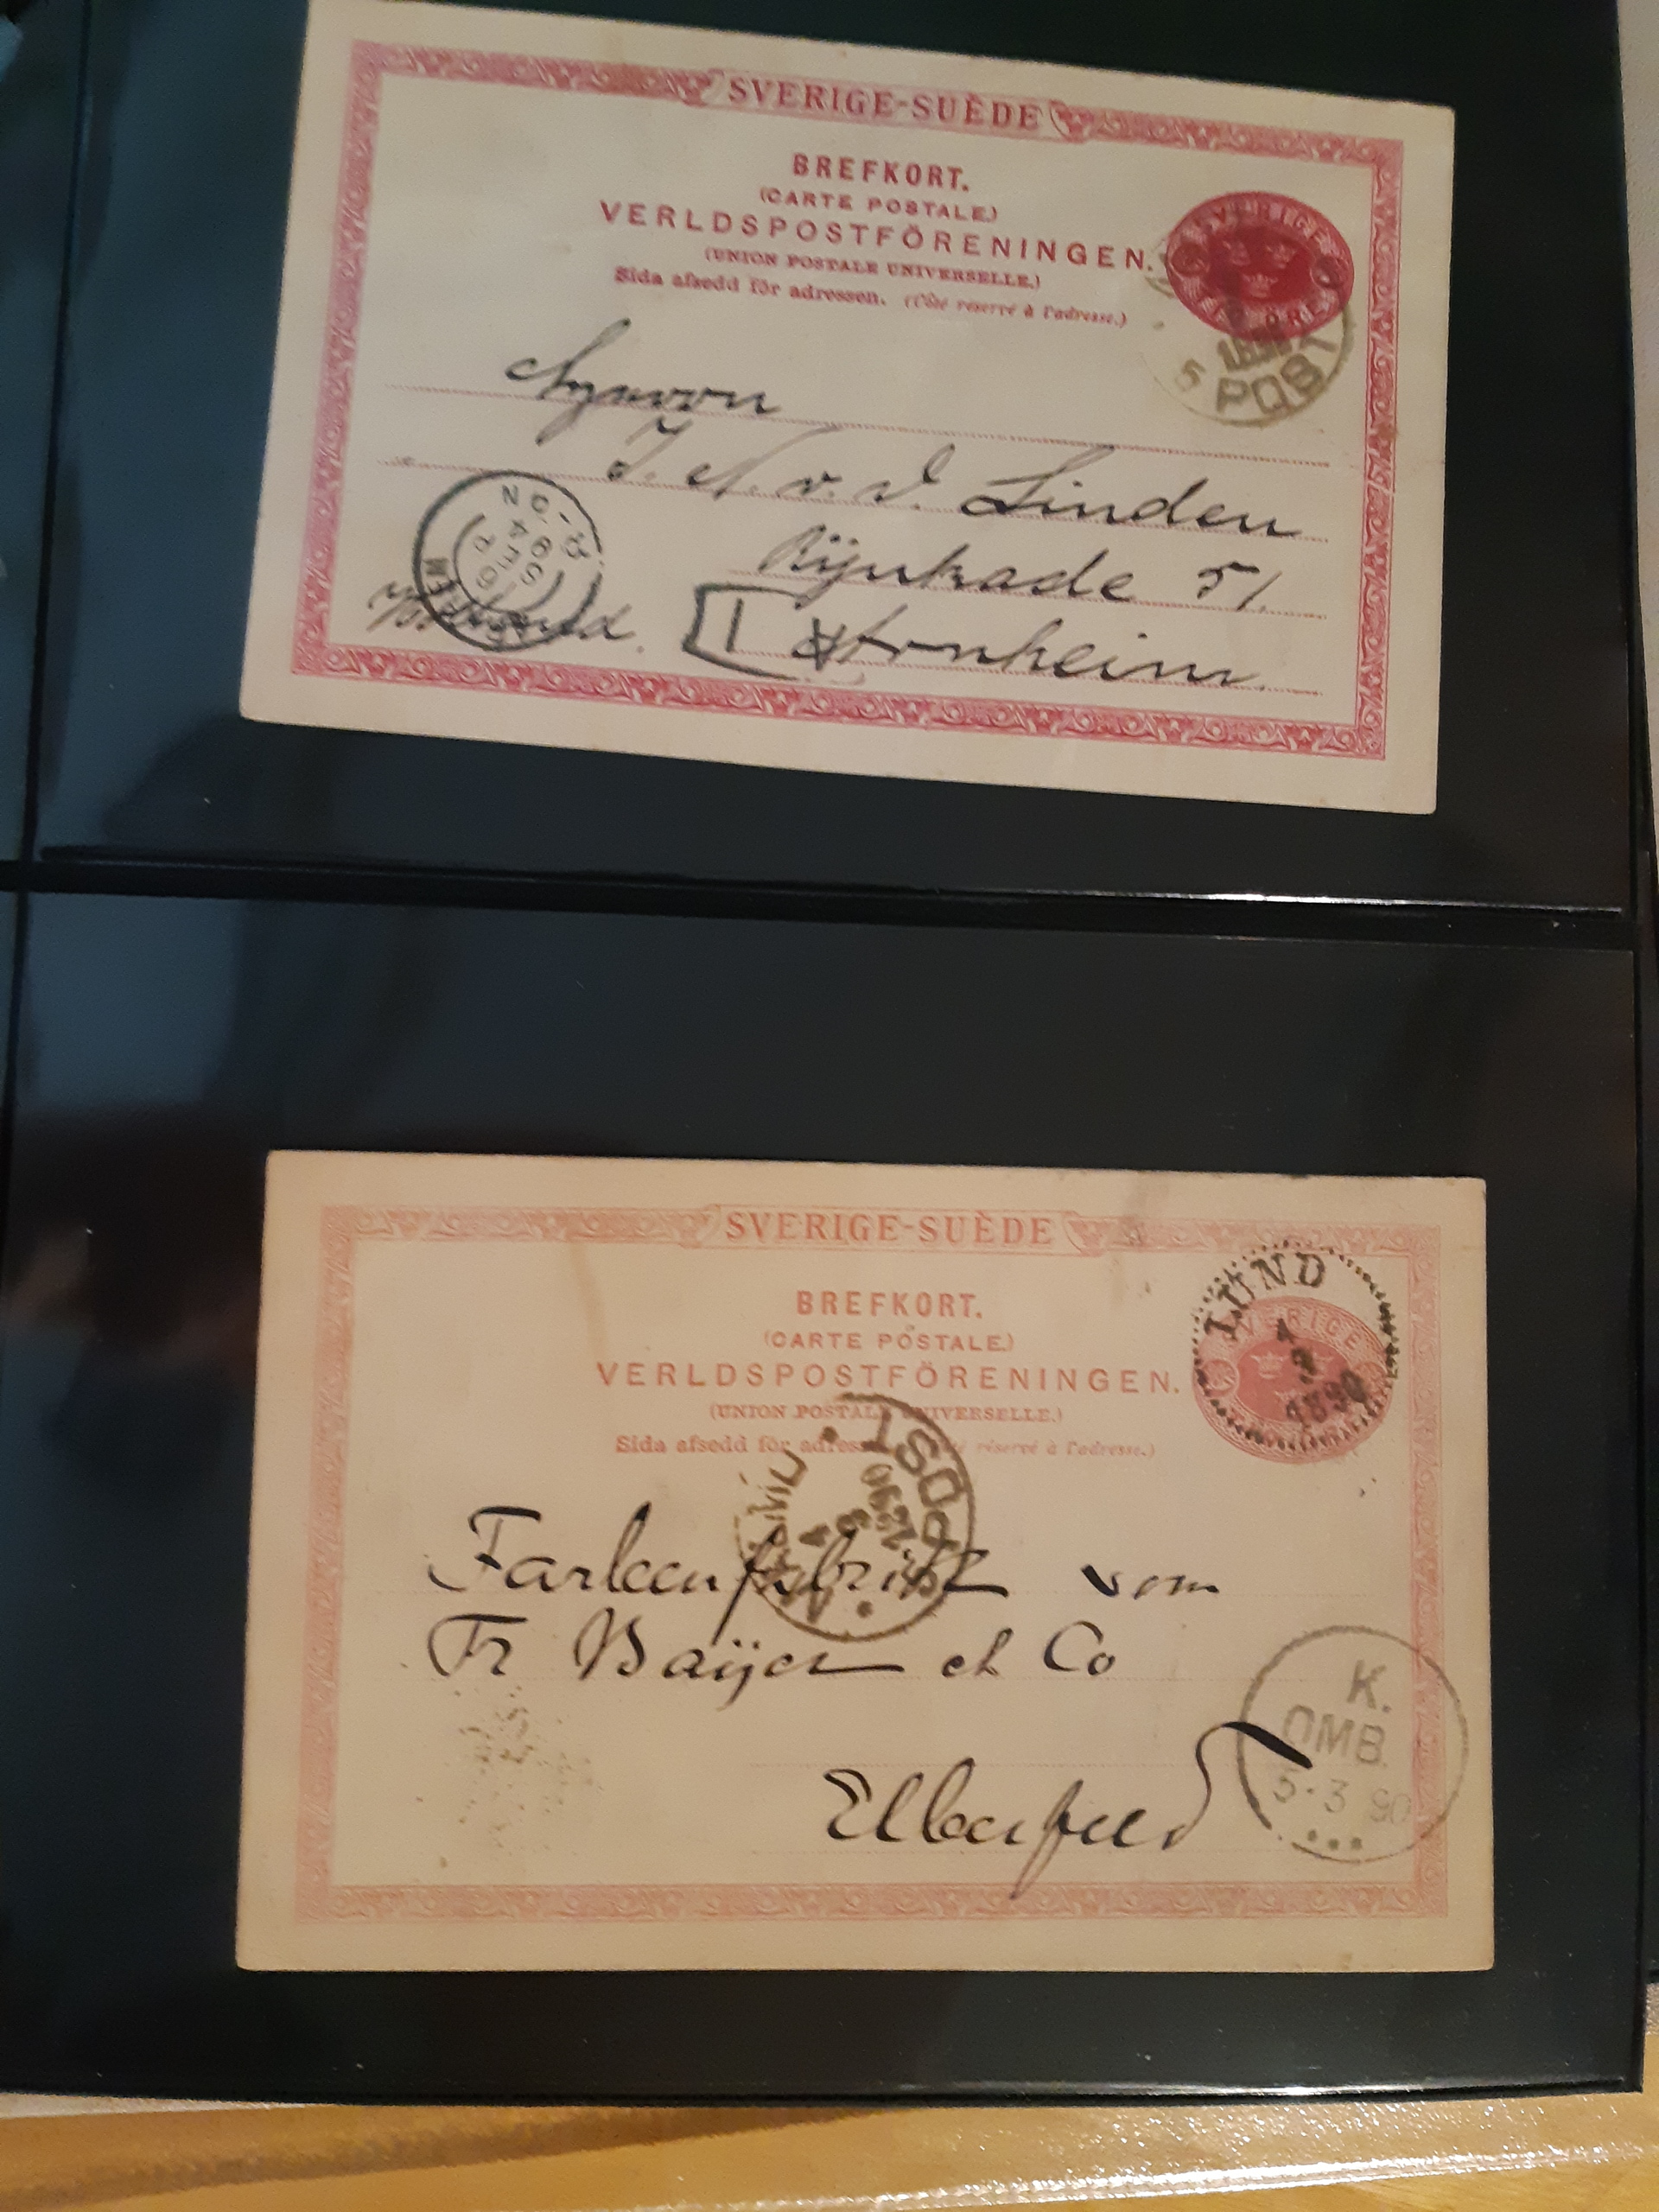 SVERIGE-SUÈDE
BREFKORT.
(CARTE POSTALE.)
VERLDSPOSTFÖRENINGEN.
(UNION POSTALE UNIVERSELLE.)
Sida afsedd för adressen. (Côté réservé à l'adresse.)
SVERIGE
5 POST
J. N. v. d. Linden
Rijnkade 51.
Arnheim
SVERIGE-SUÈDE
BREFKORT.
(CARTE POSTALE.)
VERLDSPOSTFÖRENINGEN.
(UNION POSTALE UNIVERSELLE.)
Sida afsedd för adressen. (Côté réservé à l'adresse.)
LUND
4
3
1890
SVERIGE
POST
4
3
1890
Farbenfabrik vom
Fr Bayer et Co
Elberfeld
K.
OMB.
5.3 90